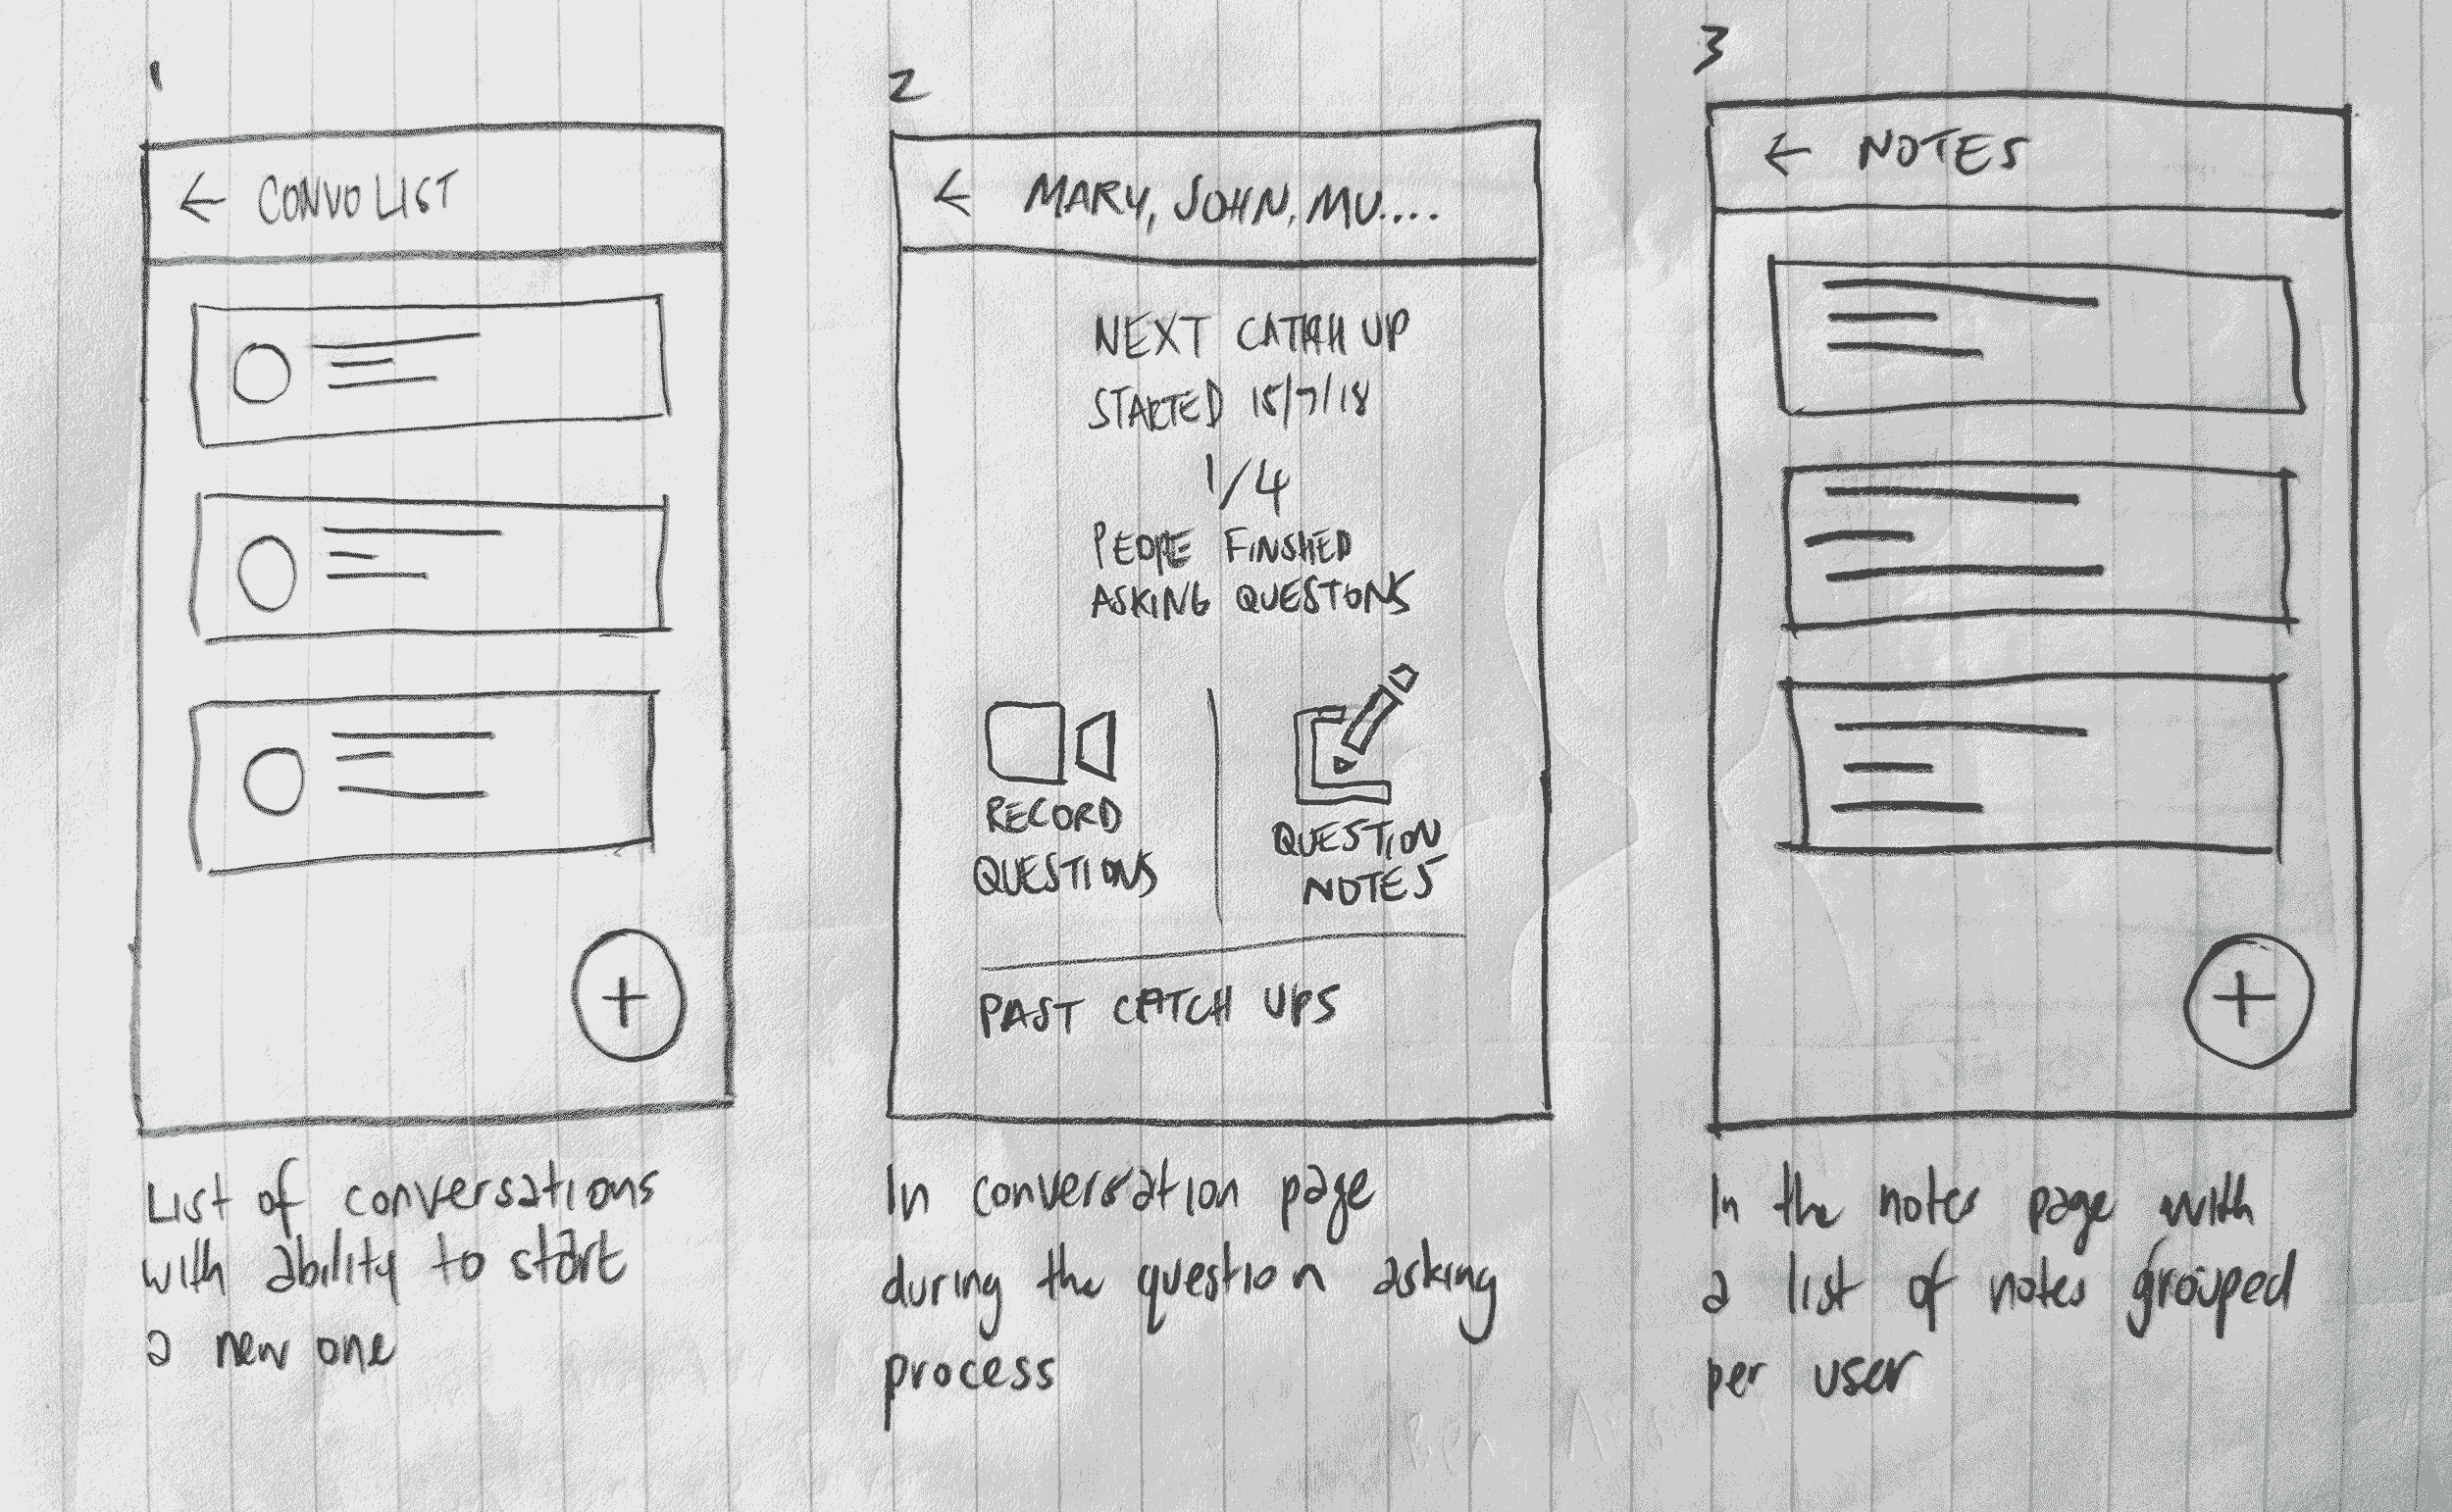 1
← CONVO LIST
+
List of conversations
with ability to start
a new one
2
← MARY, JOHN, MU....
NEXT CATCH UP
STARTED 15/7/18
1/4
PEOPE FINSHED
ASKING QUESTONS
RECORD
QUESTIONS
QUESTION
NOTES
PAST CATCH UPS
In conversation page
during the question asking
process
3
← NOTES
+
In the notes page with
a list of notes grouped
per user